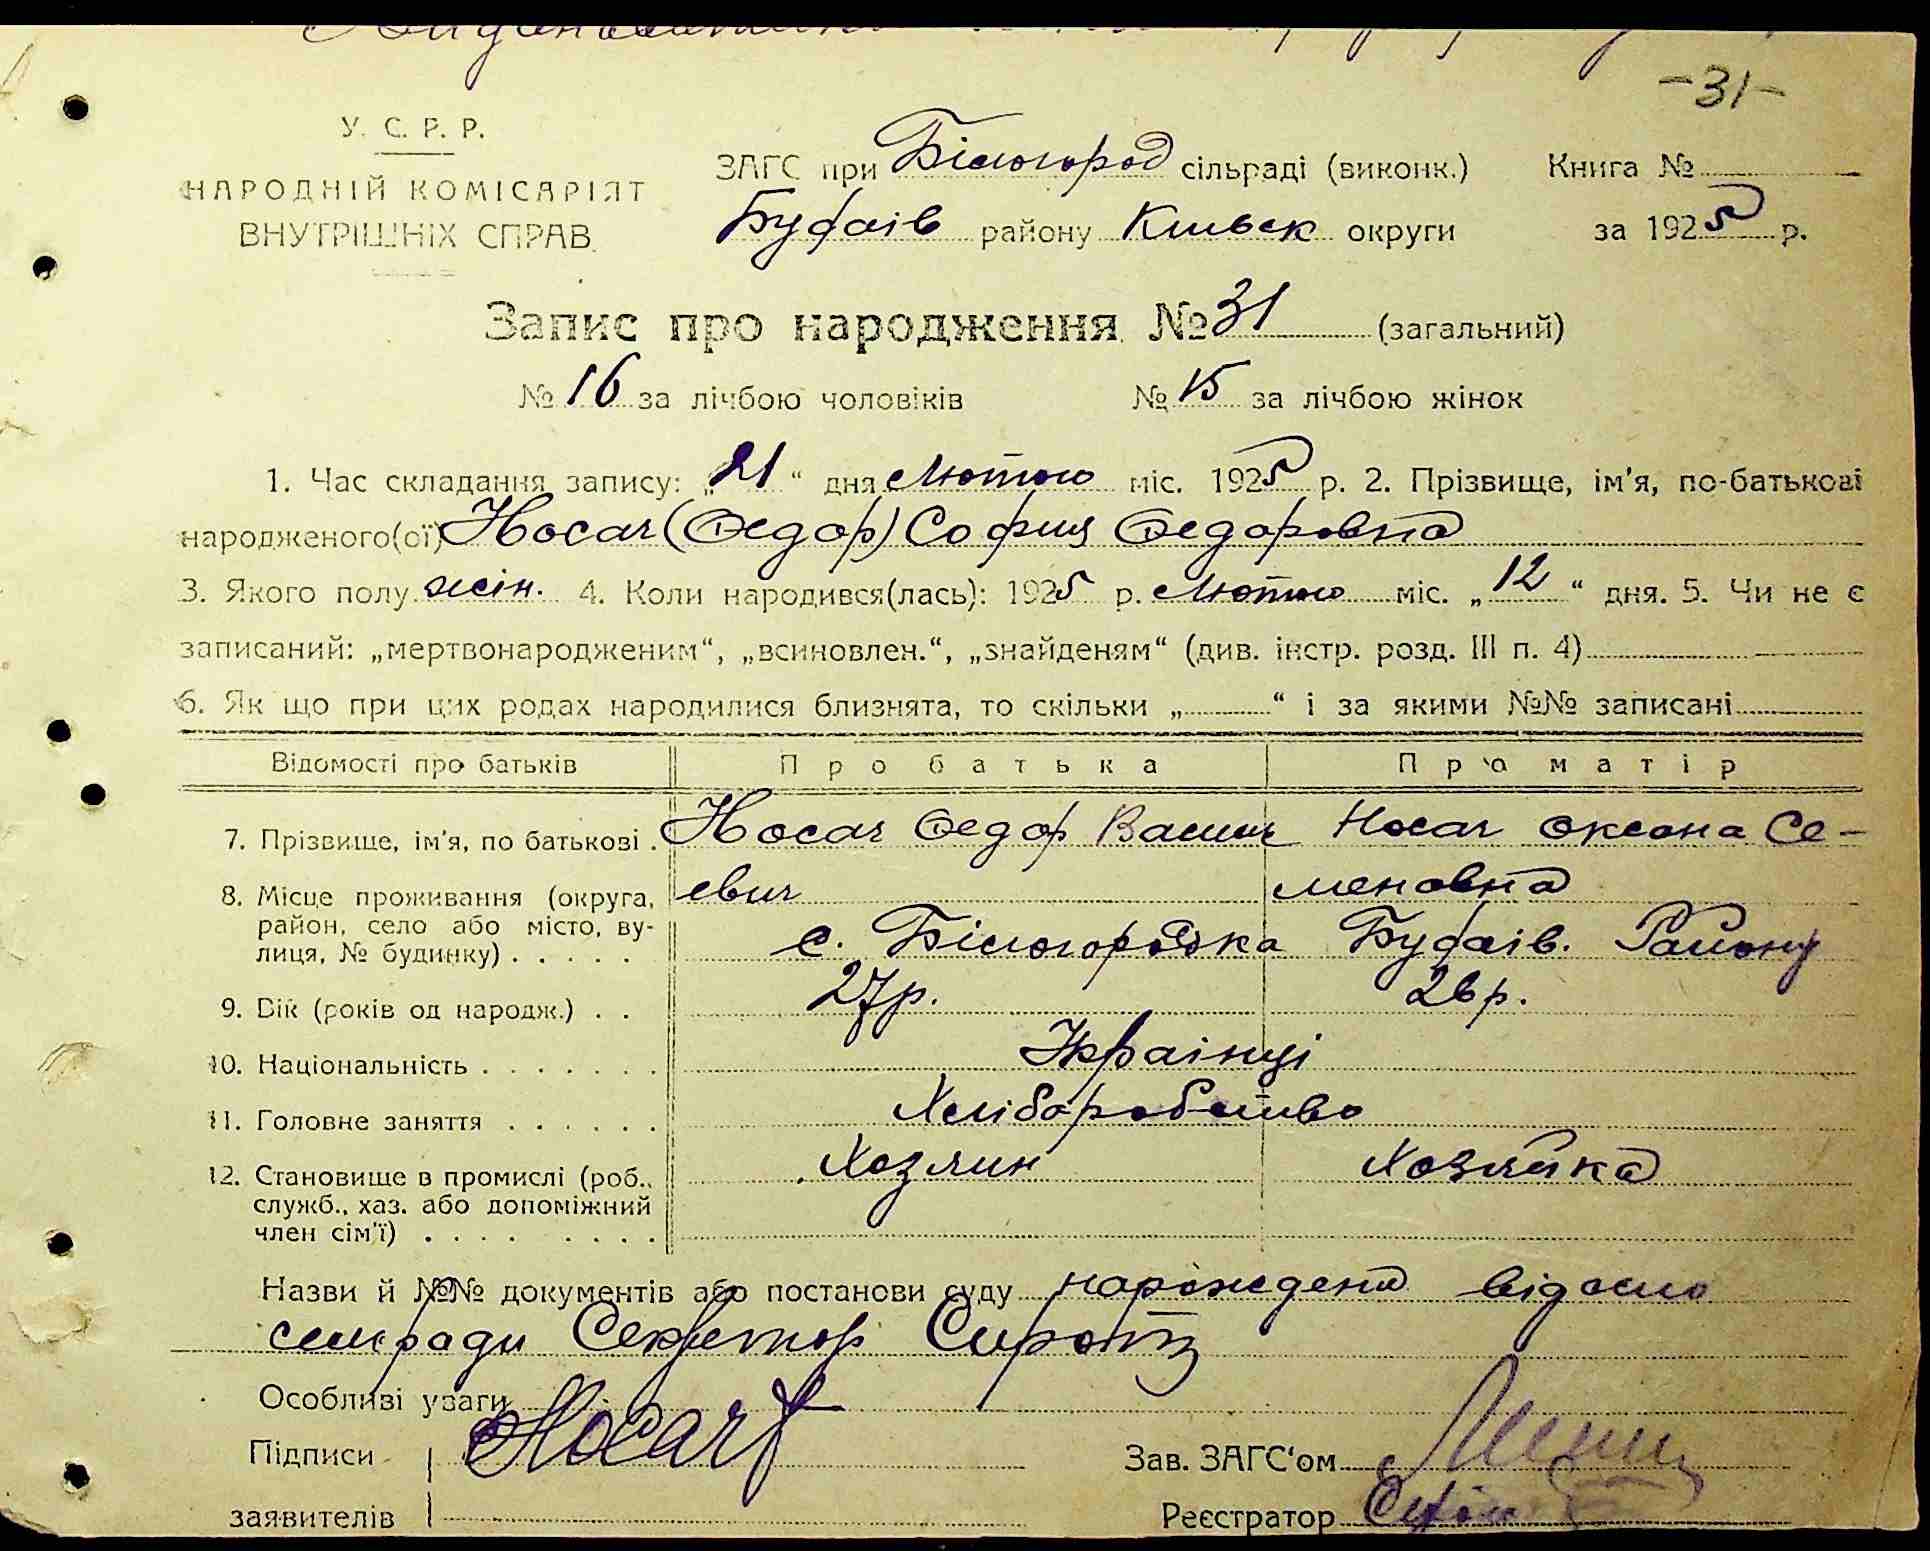 -31-
У. С. Р. Р.
НАРОДНІЙ КОМІСАРІЯТ
ВНУТРІШНІХ СПРАВ
ЗАГС при Білогород сільраді (виконк.) Книга №
Будаїв району Київськ округи за 1925 р.
Запис про народження № 31 (загальний)
№ 16 за лічбою чоловіків № 15 за лічбою жінок
1. Час складання запису: „21“ дня Лютого міс. 1925 р. 2. Прізвище, ім'я, по-батькові
народженого(ої) Носач (Федор) София Федоровна
3. Якого полу жін. 4. Коли народився(лась): 1925 р. Лютого міс. „12“ дня. 5. Чи не є
записаний: „мертвонародженим“, „всиновлен.“, „знайденям“ (див. інстр. розд. III п. 4)
6. Як що при цих родах народилися близнята, то скільки „ “ і за якими №№ записані
Відомості про батьків Про батька Про матір
7. Прізвище, ім'я, по батькові . Носач Федор Васил Носач Оксана Се-
8. Місце проживання (округа, евич меновна
район, село або місто, ву-
лиця, № будинку) . . . . . с. Білогородка Будаів. Району
9. Вік (років од народж.) . . 27р. 26р.
10. Національність . . . . . . . Українці
11. Головне заняття . . . . . . Хліборобство
12. Становище в промислі (роб., Хозяин Хозяйка
служб., хаз. або допоміжний
член сім'ї) . . . . . . . .
Назви й №№ документів або постанови суду нарождена відомо
сільради Секретор Сирота
Особливі уваги
Підписи Носач
заявителів
Зав. ЗАГС'ом
Реєстратор